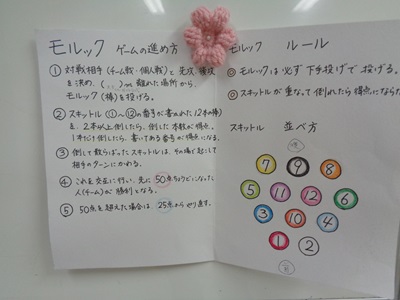 モルック ゲームの進め方
① 対戦相手(チーム戦・個人戦)と先攻・後攻
を決め、( )m離れた場所から
モルック(棒)を投げる。
② スキットル ①〜⑫の番号が書かれた12本の棒
を、2本以上倒したら、倒した本数が得点。
1本だけ倒したら、書いてある番号が得点になる。
③ 倒して散らばったスキットルは、その場で起こして
相手のターンにかわる。
④ これを交互に行い、先に50点ちょうどになった
人(チーム)が勝利となる。
⑤ 50点を超えた場合は、25点からやり直す。
モルック ルール
◎ モルックは必ず下手投げで投げる。
◎ スキットルが重なって倒れたら得点にならな
スキットル 並べ方
後
⑦ ⑨ ⑧
⑤ ⑪ ⑫ ⑥
③ ⑩ ④
① ②
前